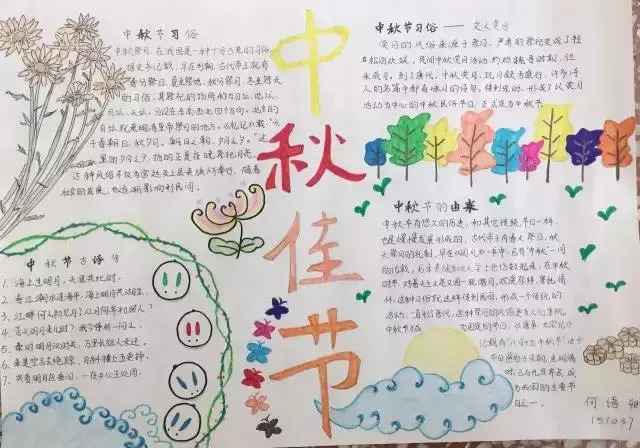 中秋佳节
中秋节习俗
中秋祭月,在我国是一种十分古老的习俗。
据史书记载,早在周朝,古代帝王就有
春分祭日、夏至祭地、秋分祭月、冬至祭天
的习俗,其祭祀的场所称为日坛、地坛、
月坛、天坛。分设在东南西北四个方向。北京的
月坛就是明清皇帝祭月的地方。《礼记》载:"天
子春朝日,秋夕月。朝日之朝,夕月之夕。"这
里的夕月之夕,指的正是夜晚祭祀月亮。
这种风俗不仅为宫廷及上层贵族所奉行,随着
社会的发展,也逐渐影响到民间。
中秋节习俗——文人赏月
赏月的风俗来源于祭月,严肃的祭祀变成了轻
松的欢娱。民间中秋赏月活动约始魏晋时期,但
未成习。到了唐代,中秋赏月、玩月颇为盛行,许多诗
人的名篇中都有咏月的诗句。
活动为中心的中秋民俗节日,正式定为中秋节。
中秋节的由来
中秋节有悠久的历史,和其它传统节日一样,
也是慢慢发展形成的,古代帝王有春天祭日,秋
天祭月的礼制,早在《周礼》一书中,已有"中秋"一词
的记载。后来贵族和文人学士也仿效起来,在中秋
时节,对着天上又亮又圆一轮皓月,观赏祭拜,寄托情
怀,这种习俗就这样传到民间,形成一个传统的
活动。一直到了唐代,这种祭月的风俗更为人们重视,
中秋节才成为固定的节日,《唐书·太宗记》
记载有"八月十五中秋节",这个
节日盛行于宋朝,至明清
时,已与元旦齐名,成
为我国的主要节
日之一。
中秋节古诗句
1、海上生明月,天涯共此时。
2、春江潮水连海平,海上明月共潮生。
3、江畔何人初见月?江月何年初照人?
4、青天明月来几时?我今停杯一问之。
5、秦时明月汉时关,万里长征人未还。
6、来是空言去绝踪,月斜楼上五更钟。
7、共看明月应垂泪,一夜乡心五处同。
何语